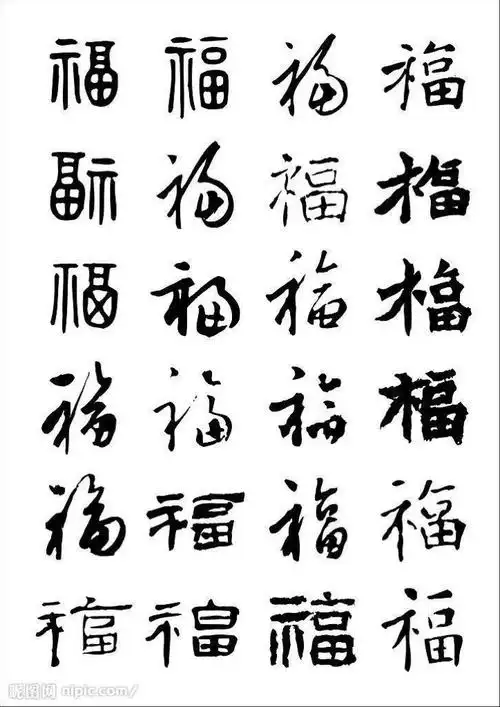 福福福福
福福福福
福福福福
福福福福
福福福福
福福福福
昵图网 nipic.com/